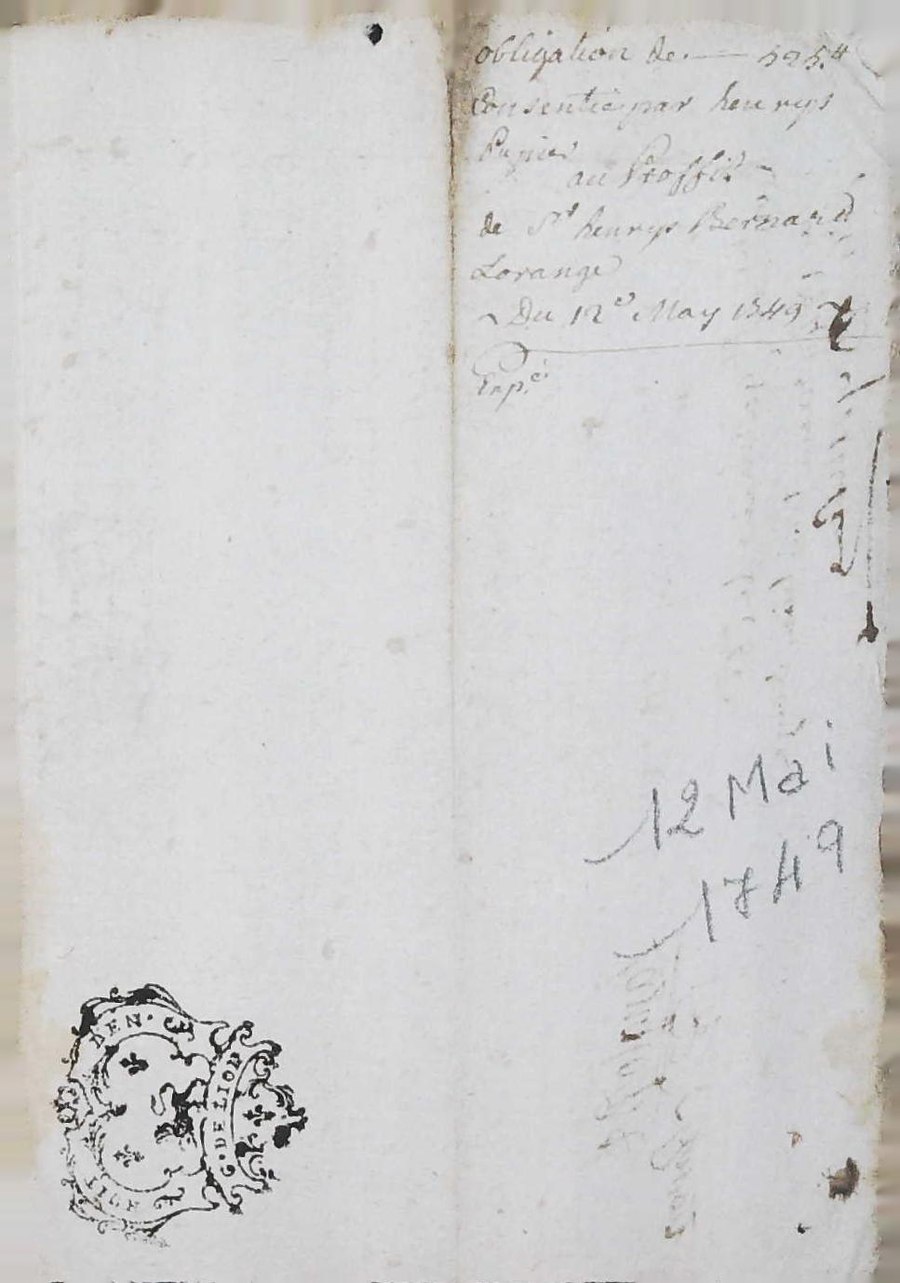 obligation de — 525.ᵗᵗ
Consentie par henrys
au Proffit
de Sʳ henrys Bernard
Lorange
Du 12ᵉ May 1749
Exp.ᵉ
12 Mai
1749
DEN.
G. DE LION